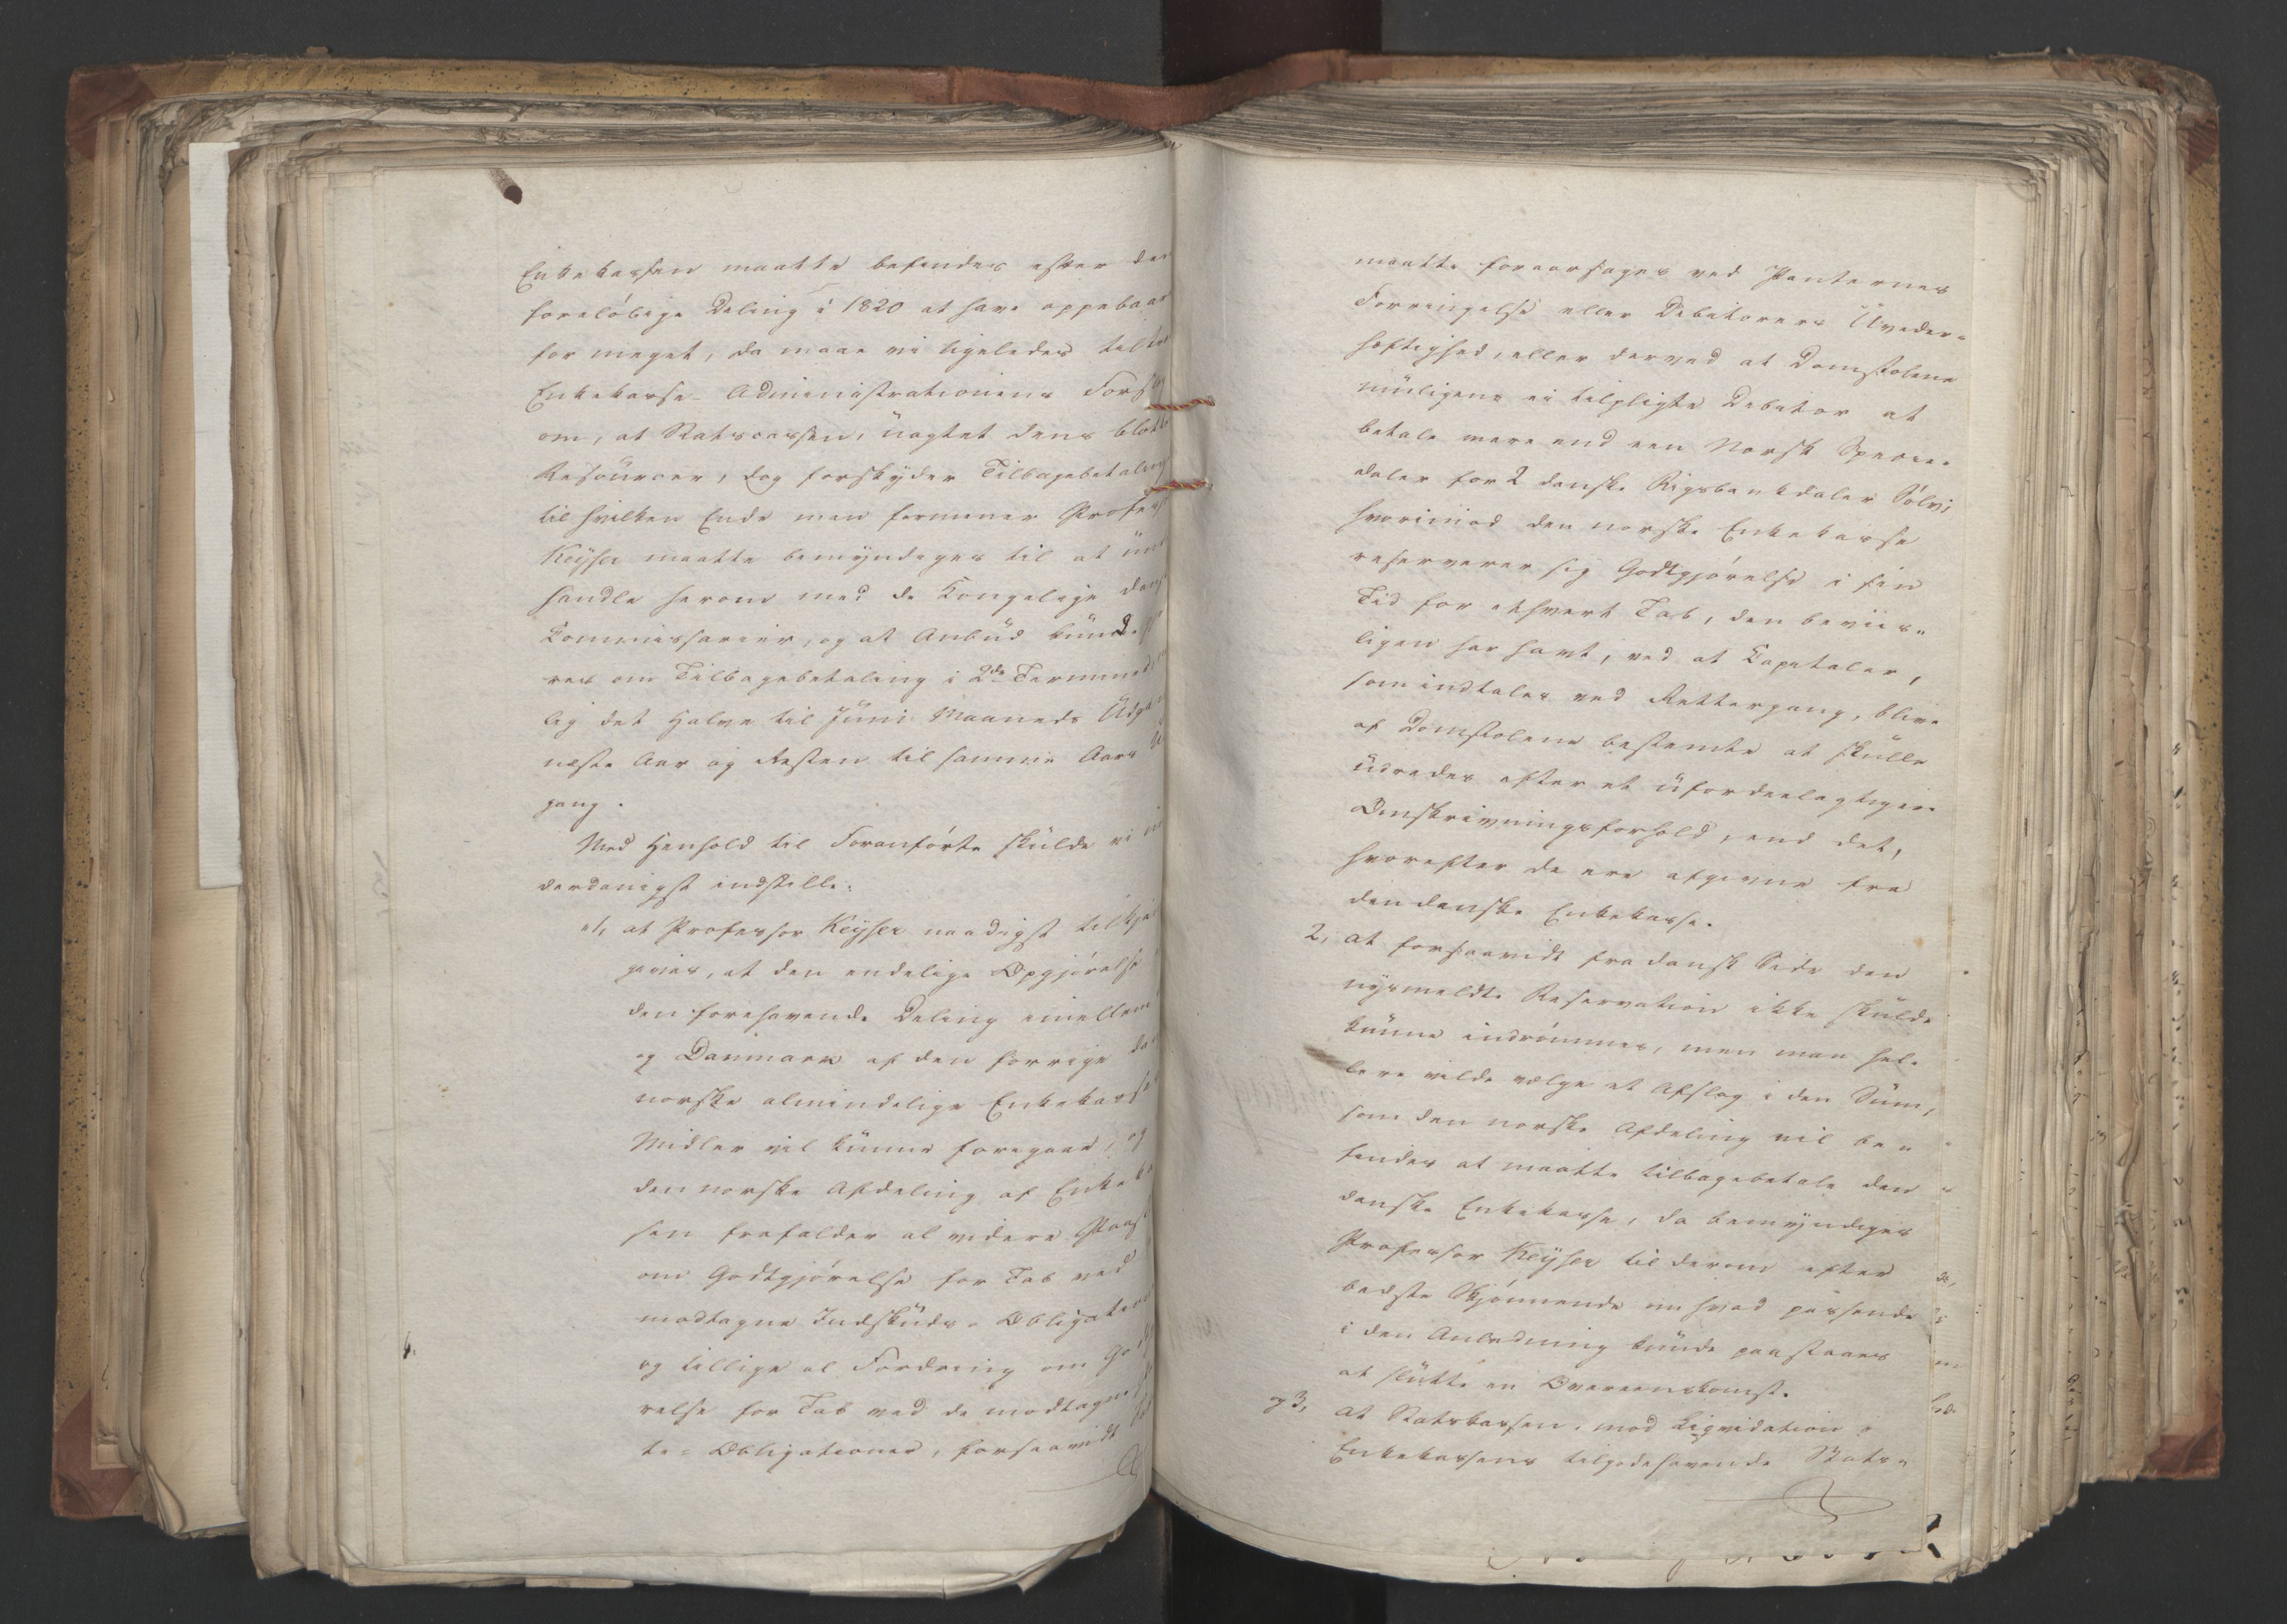 Enkekassen maatte befindes efter den
foreløbige Deling i 1820 at have oppebaar
for meget, da maae vi ligeledes tiltræ
Enkekasse-Administrationens Forslag
om, at Statscassen, uagtet dens blotte
Resourcer, dog forskyder Tilbagebetaling
til hvilken Ende man formener Profess
Keyser maatte bemyndiges til at un
handle herom med de Kongelige dansk
Commissarier, og at Anbud kunde gjø
res om Tilbagebetaling i 2de Terminer
lig det Halve til Juni Maaneds Udgan
næste Aar og Resten til samme Aars Ud
gang.
Med Henhold til Foranførte skulde vi un
derdanigst indstille:
1, at Professor Keyser naadigst tilkje
gives, at den endelige Opgjørelse
den forehavende Deling imellem
og Danmark af den forrige da
norske almindelige Enkekasse
Midler vil kunne foregaae, og
den norske Afdeling af Enkeka
sen frafalder al videre Paas
om Godtgjørelse for Tab ved
modtagne Indskuds-Obligation
og tillige al Fordring om Godtgj
relse for Tab ved de modtagne
te-Obligationer, forsaavidt
maatte foraarsages ved Panternes
Forringelse eller Debitorers Uveder-
hæftighed, eller derved at Domstolene
muligens ei tilpligte Debitor at
betale mere end een Norsk Specie-
daler for 2 danske Rigsbankdaler Sølv;
hvorimod den norske Enkekasse
reserverer sig Godtgjørelse i sin
Tid for ethvert Tab, den beviis-
ligen har havt, ved at Capitaler,
som indtales ved Rettergang, blive
af Domstolene bestemte at skulle
udredes efter et ufordeelagtigere
Omskrivningsforhold, end det,
hvorefter de ere afgivne fra
den danske Enkekasse.
2, at forsaavidt fra dansk Side den
nysmeldte Reservation ikke skulde
kunne indrømmes, men man hel-
lere vilde vælge et Afslag i den Sum,
som den norske Afdeling vil be-
findes at maatte tilbagebetale den
danske Enkekasse, da bemyndiges
Professor Keyser til derom efter
bedste Skjønnende om hvad passende
i den Anledning kunde paastaaes
at slutte en Overeenskomst.
og 3, at Statskassen, mod Liqvidation i
Enkekassens tilgodehavende Stats-